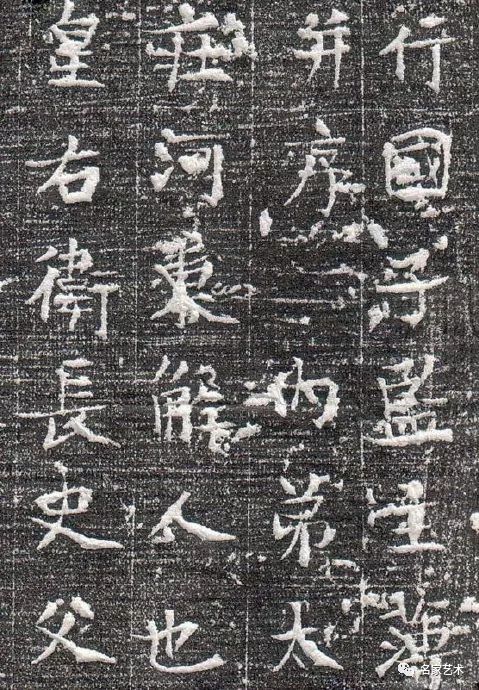 行國子監主簿
并序 内弟太
莊河東解人也
皇右衛長史父
名家艺术